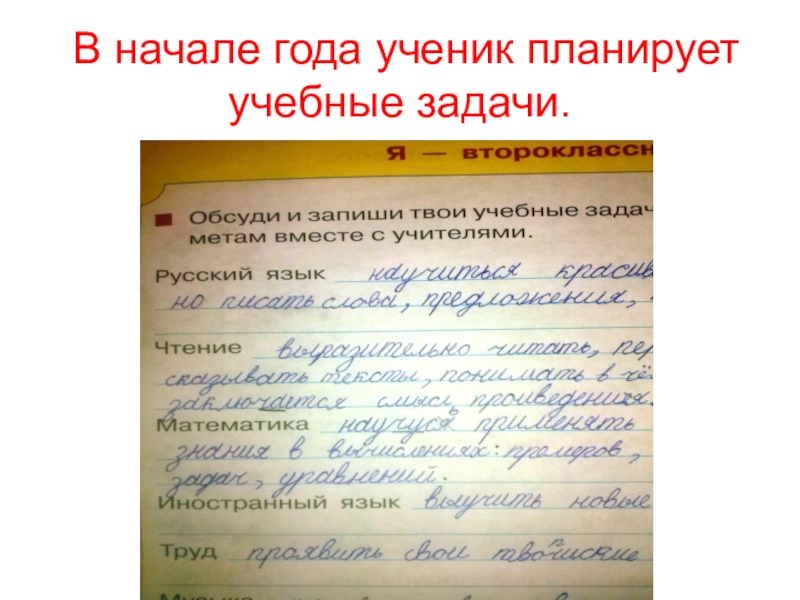 В начале года ученик планирует
учебные задачи.
Я — второклассн
Обсуди и запиши твои учебные задач
метам вместе с учителями.
Русский язык научиться красив
но писать слова, предложения,
Чтение выразительно читать, пер
сказывать тексты, понимать в чём
заключается смысл произведения.
Математика научуся применять
знания в вычислениях: примеров,
задач, уравнений.
Иностранный язык выучить новые
Труд проявить свои
Музыка